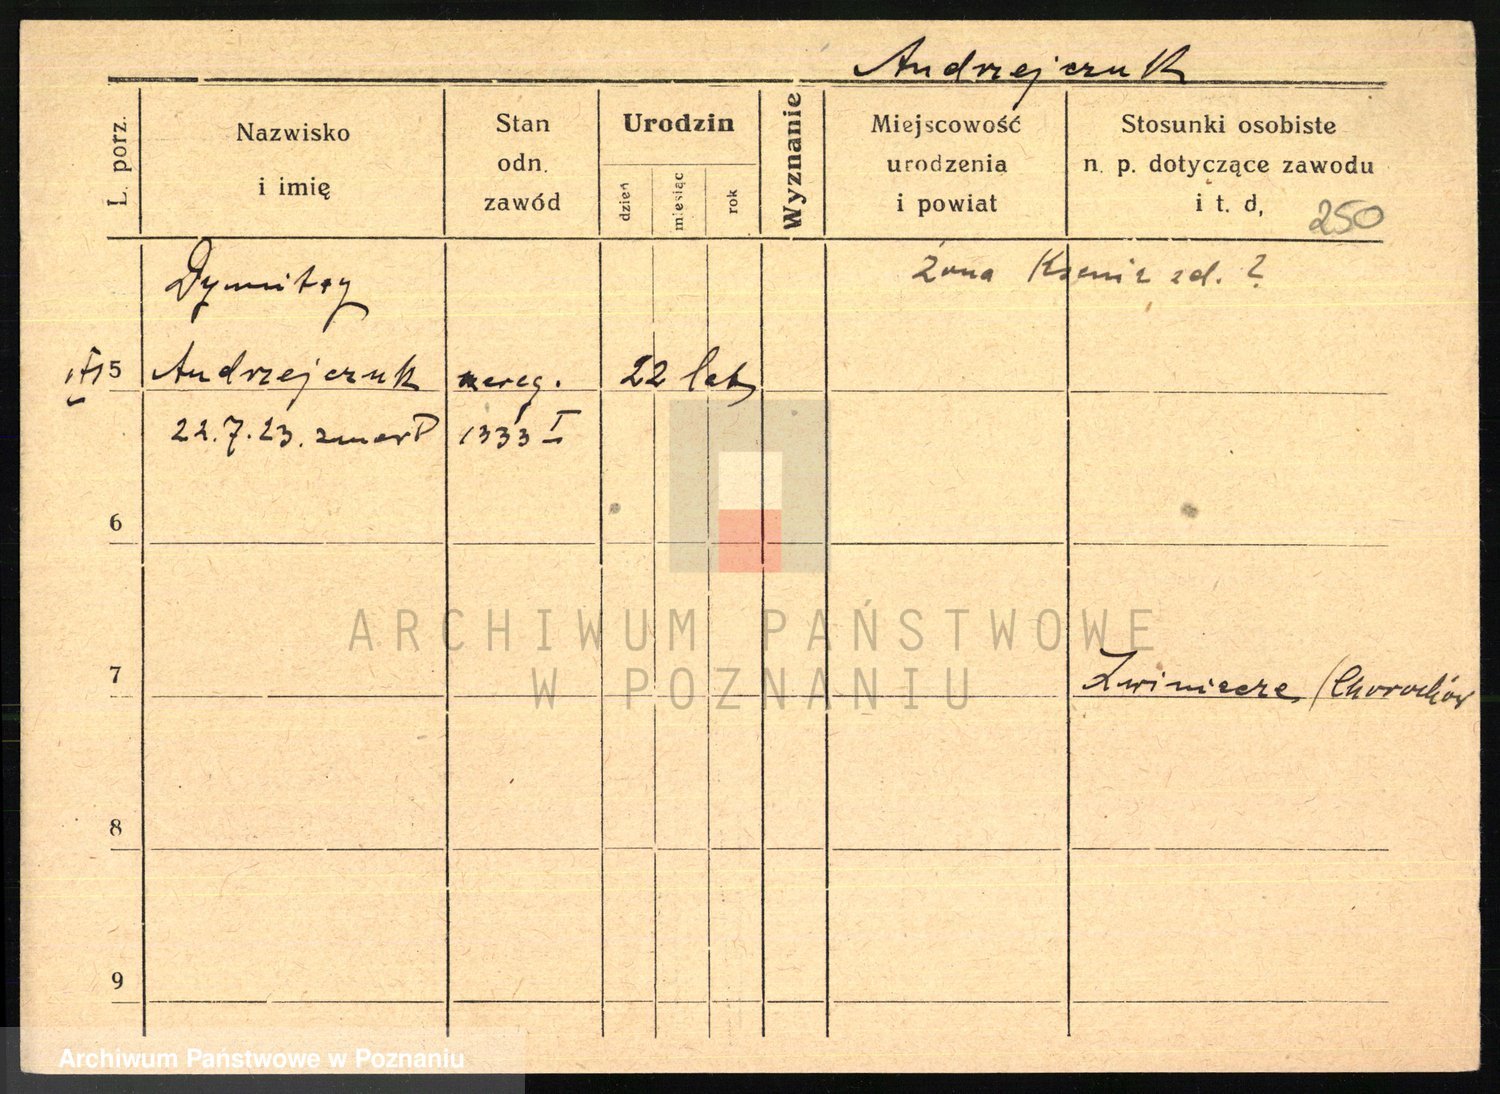 Andrzejczuk
L. porz.
Nazwisko
i imię
Stan
odn.
zawód
Urodzin
dzień
miesiąc
rok
Wyznanie
Miejscowość
urodzenia
i powiat
Stosunki osobiste
n. p. dotyczące zawodu
i t. d,
250
Dymitry
Żona Ksenia zd. ?
5 Andrzejczuk 22 lat
22.7.23. zmarł 1333 I
6
7
Zwiniacze (Chorochów
8
9
ARCHIWUM PAŃSTWOWE
W POZNANIU
Archiwum Państwowe w Poznaniu